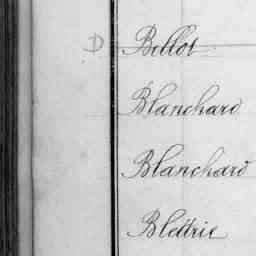 D Bellot
Blanchard
Blanchard
Bledrie